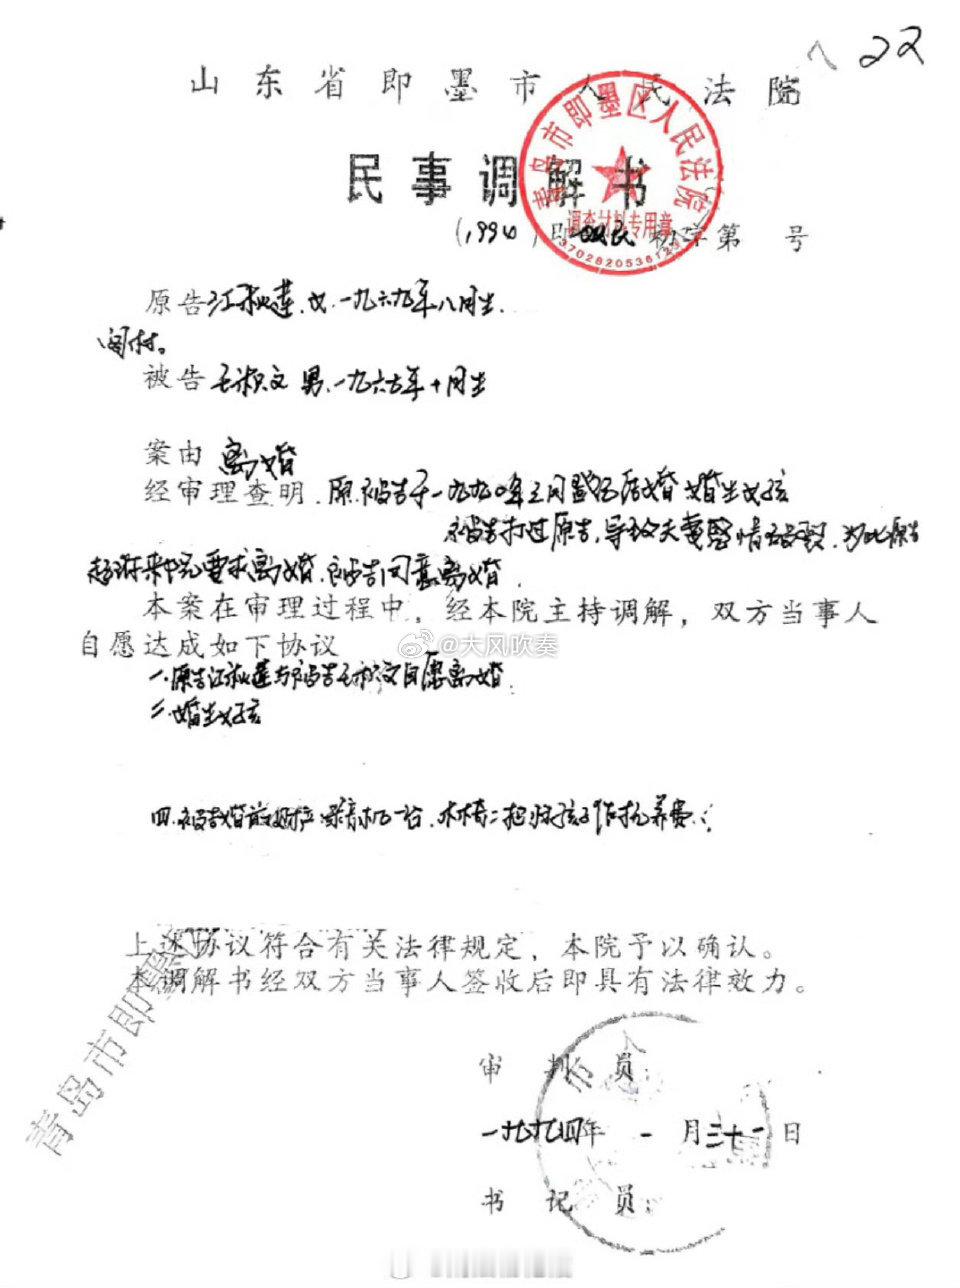 22
山东省即墨市人民法院
民事调解书
青岛市即墨区人民法院
调查材料专用章
3702820536123
(1994)即民初字第 号
原告江秋莲,女,一九六九年八月生.
闾村。
被告 男,一九六七年十月生
案由 离婚
经审理查明,原、被告于一九九〇年三月登记结婚 婚生女孩
被告打过原告,导致夫妻感情破裂,为此原告
起诉来院要求离婚,被告同意离婚.
本案在审理过程中,经本院主持调解,双方当事人
自愿达成如下协议
@大风吹奏
一、原告江秋莲与被告 自愿离婚.
二、婚生女孩
四、被告婚前财产录音机一台、木椅二把归孩子作抚养费.
上述协议符合有关法律规定,本院予以确认。
本调解书经双方当事人签收后即具有法律效力。
青岛市即墨
审判员:
一九九四年一月三十一日
书记员: